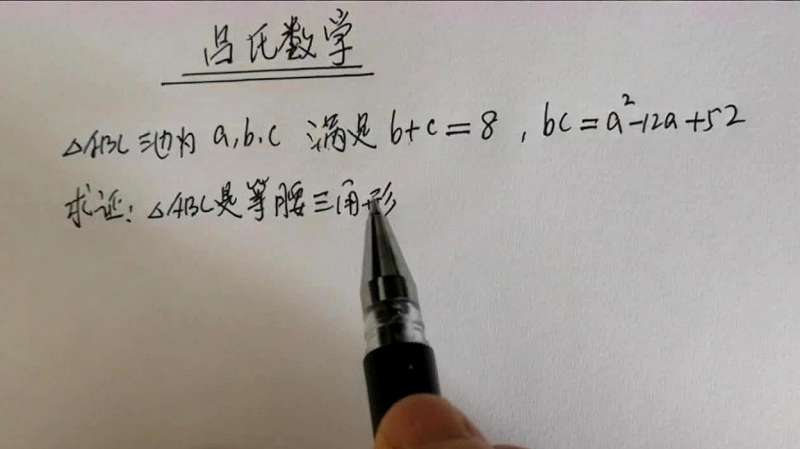 吕氏数学
△ABC三边为a,b.c 满足b+c=8,bc=a²-12a+52
求证:△ABC是等腰三角形